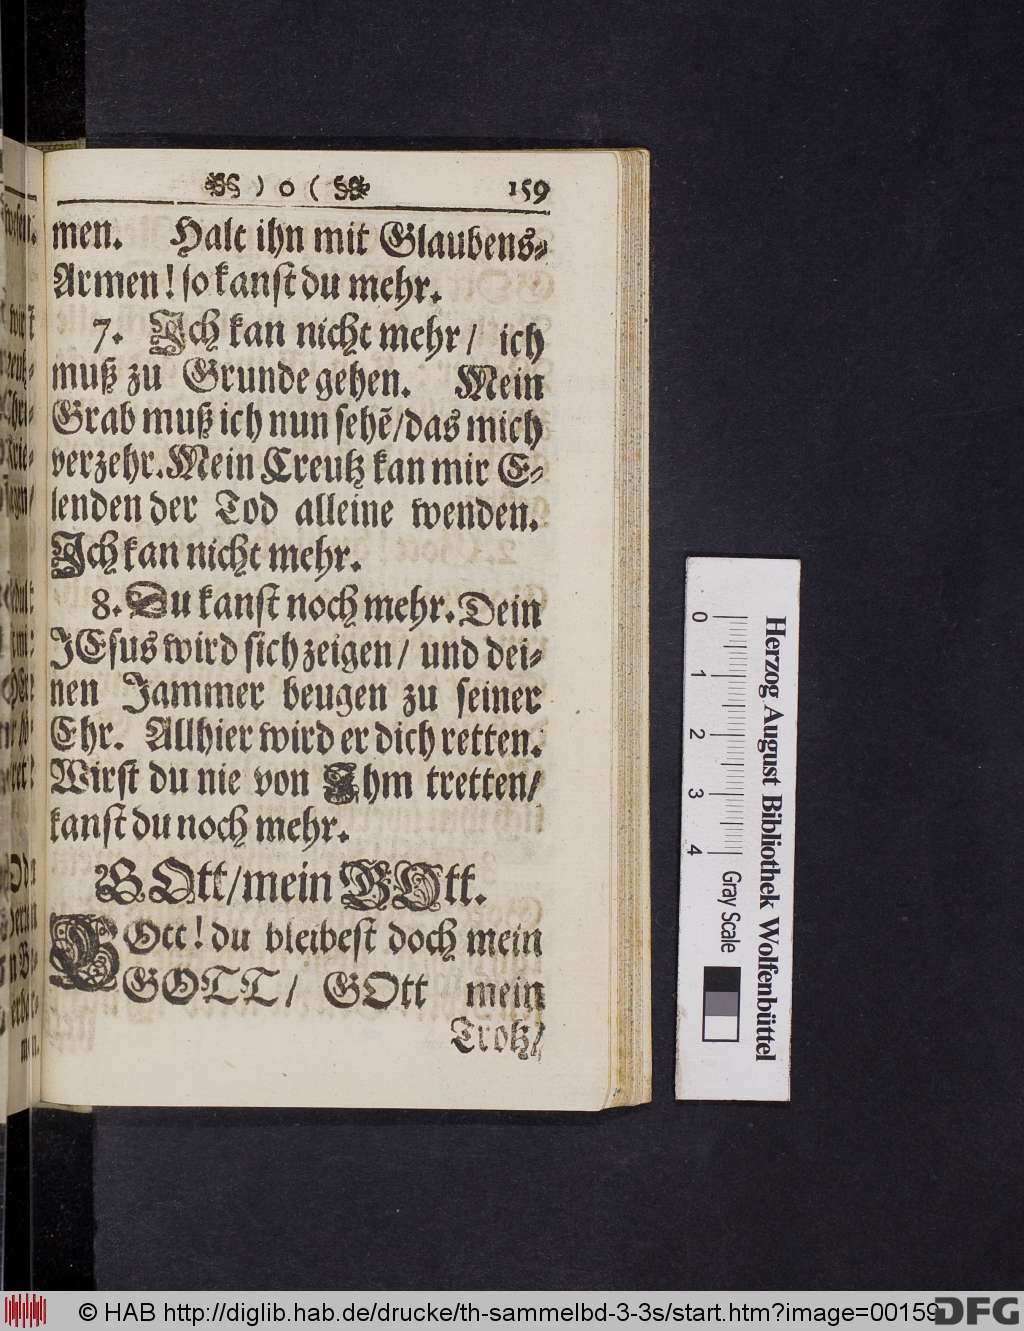 ) o ( 159
men. Halt ihn mit Glaubens-
Armen! so kanst du mehr.
7. Ich kan nicht mehr/ ich
muß zu Grunde gehen. Mein
Grab muß ich nun sehẽ/das mich
verzehr. Mein Creutz kan mir E-
lenden der Tod alleine wenden.
Ich kan nicht mehr.
8. Du kanst noch mehr. Dein
JEsus wird sich zeigen/ und dei-
nen Jammer beugen zu seiner
Ehr. Allhier wird er dich retten.
Wirst du nie von Ihm tretten/
kanst du noch mehr.
GOtt/mein GOtt.
GOtt! du bleibest doch mein
GOTT/ GOtt mein
Trotz/
0 1 2 3 4
Gray Scale
Herzog August Bibliothek Wolfenbüttel
© HAB http://diglib.hab.de/drucke/th-sammelbd-3-3s/start.htm?image=00159
DFG